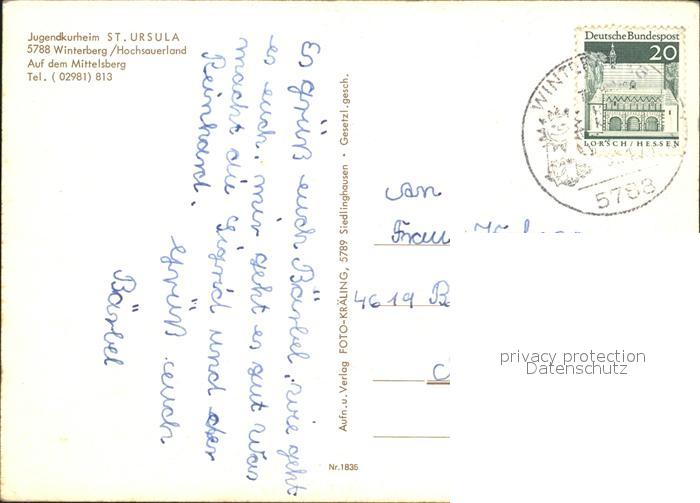 Jugendkurheim ST. URSULA
5788 Winterberg /Hochsauerland
Auf dem Mittelsberg
Tel. ( 02981) 813
Es grüß euch Bärbel, wie geht
es euch. mir geht es gut Was
macht die Sigrid und der
Reinhard.
Grüß euch
Bärbel
Aufn. u. Verlag FOTO-KRÄLING, 5789 Siedlinghausen • Gesetzl. gesch.
Nr. 1835
Deutsche Bundespost
20
LORSCH / HESSEN
WINTER
5788
An
Frau
4619
privacy protection
Datenschutz